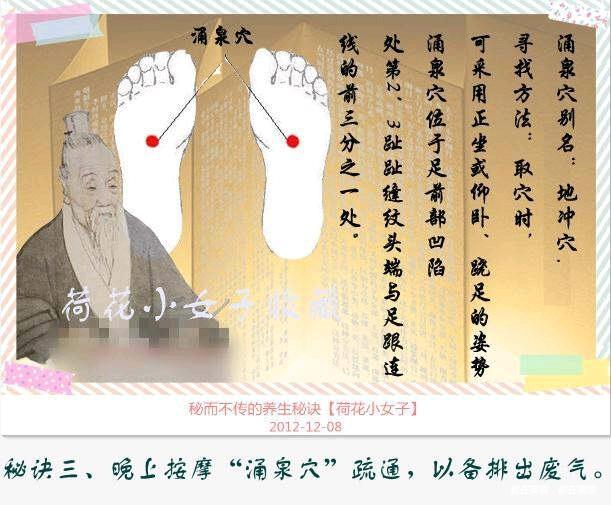 涌泉穴
涌泉穴别名：地冲穴.
寻找方法：取穴时，
可采用正坐或仰卧、跷足的姿势
涌泉穴位于足前部凹陷
处第2、3趾趾缝纹头端与足跟连
线的前三分之一处。
荷花小女子收藏
秘而不传的养生秘诀【荷花小女子】
2012-12-08
秘诀三、晚上按摩“涌泉穴”疏通，以备排出废气。